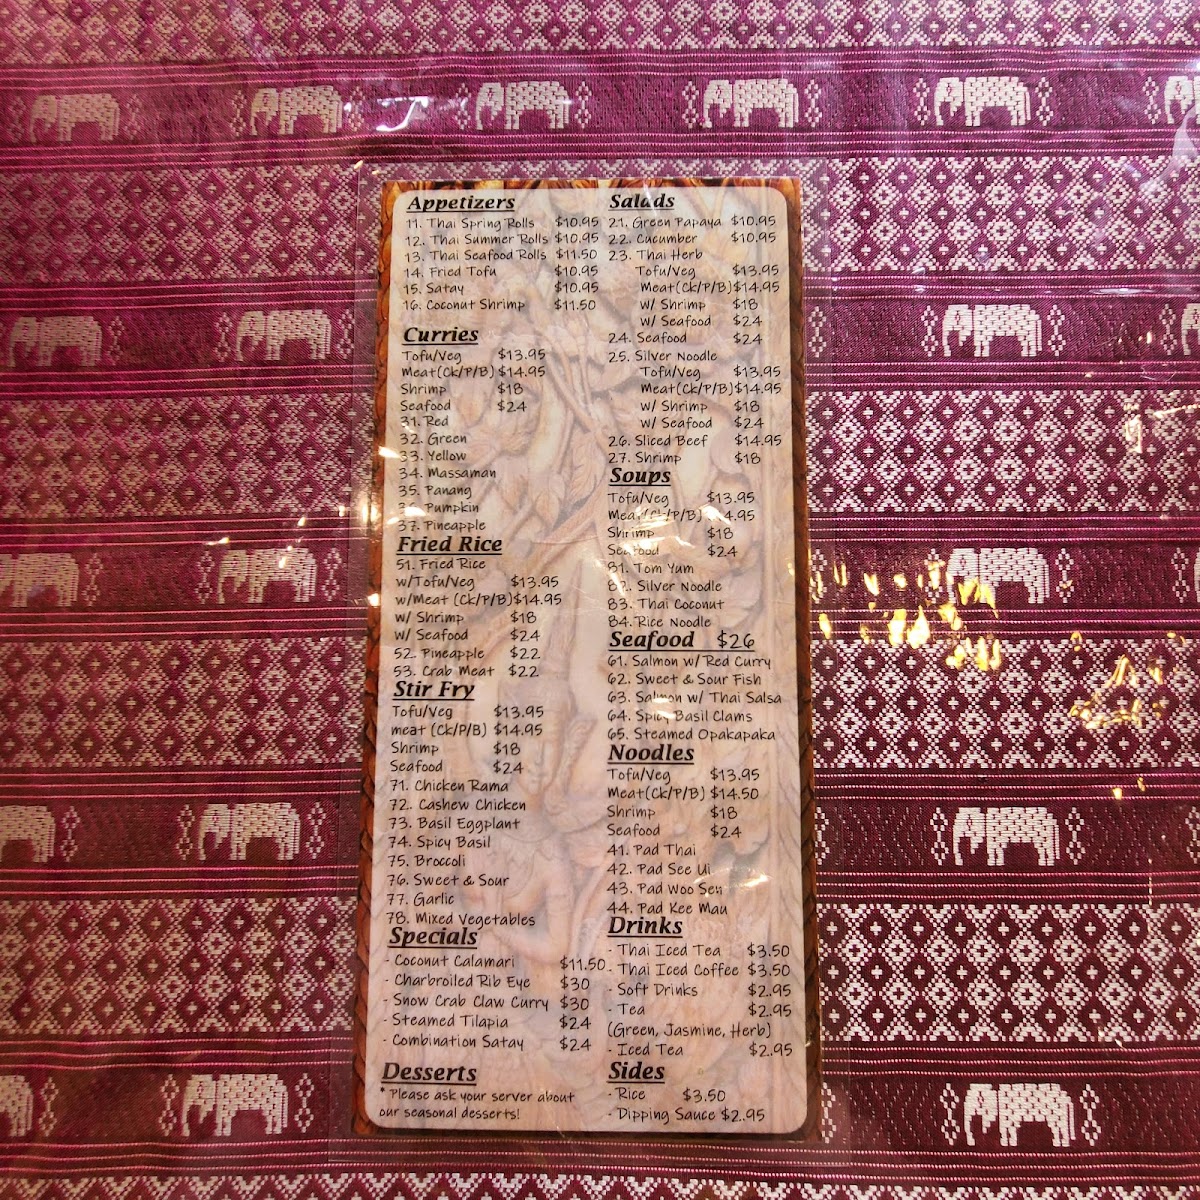 Appetizers
11. Thai Spring Rolls $10.95
12. Thai Summer Rolls $10.95
13. Thai Seafood Rolls $11.50
14. Fried Tofu $10.95
15. Satay $10.95
16. Coconut Shrimp $11.50
Curries
Tofu/Veg $13.95
Meat(Ck/P/B) $14.95
Shrimp $18
Seafood $24
31. Red
32. Green
33. Yellow
34. Massaman
35. Panang
Pumpkin
37. Pineapple
Fried Rice
51. Fried Rice
w/Tofu/Veg $13.95
w/Meat (Ck/P/B)$14.95
w/ Shrimp $18
w/ Seafood $24
52. Pineapple $22
53. Crab Meat $22
Stir Fry
Tofu/Veg $13.95
meat (Ck/P/B) $14.95
Shrimp $18
Seafood $24
71. Chicken Rama
72. Cashew Chicken
73. Basil Eggplant
74. Spicy Basil
75. Broccoli
76. Sweet & Sour
77. Garlic
78. Mixed Vegetables
Specials
- Coconut Calamari $11.50
- Charbroiled Rib Eye $30
- Snow Crab Claw Curry $30
- Steamed Tilapia $24
- Combination Satay $24
Desserts
* Please ask your server about
our seasonal desserts!
Salads
21. Green Papaya $10.95
22. Cucumber $10.95
23. Thai Herb
Tofu/Veg $13.95
Meat(Ck/P/B)$14.95
w/ Shrimp $18
w/ Seafood $24
24. Seafood $24
25. Silver Noodle
Tofu/Veg $13.95
Meat(Ck/P/B)$14.95
w/ Shrimp $18
w/ Seafood $24
26. Sliced Beef $14.95
27. Shrimp $18
Soups
Tofu/Veg $13.95
Meat(Ck/P/B) $14.95
Shrimp $18
Seafood $24
81. Tom Yum
82. Silver Noodle
83. Thai Coconut
84. Rice Noodle
Seafood $26
61. Salmon w/ Red Curry
62. Sweet & Sour Fish
63. Salmon w/ Thai Salsa
64. Spicy Basil Clams
65. Steamed Opakapaka
Noodles
Tofu/Veg $13.95
Meat(Ck/P/B) $14.50
Shrimp $18
Seafood $24
41. Pad Thai
42. Pad See Ui
43. Pad Woo Sen
44. Pad Kee Mau
Drinks
- Thai Iced Tea $3.50
- Thai Iced Coffee $3.50
- Soft Drinks $2.95
- Tea $2.95
(Green, Jasmine, Herb)
- Iced Tea $2.95
Sides
- Rice $3.50
- Dipping Sauce $2.95